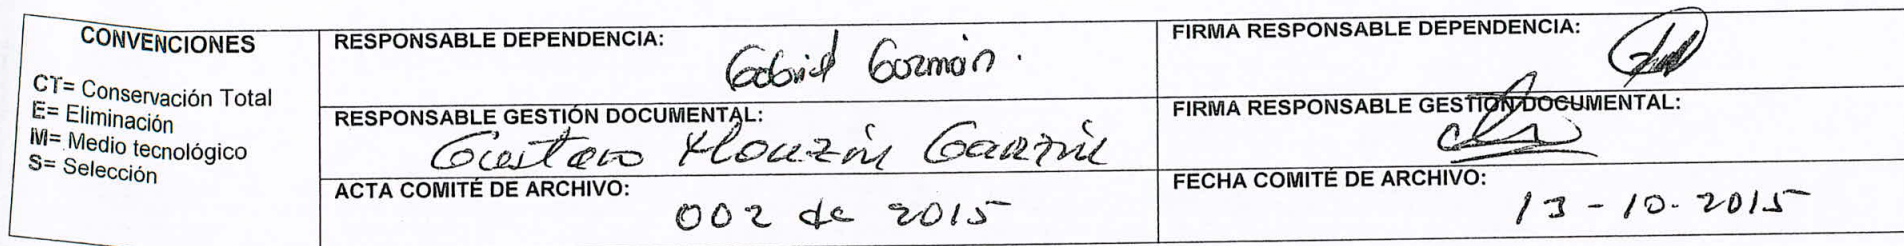 CONVENCIONES
CT= Conservación Total
E= Eliminación
M= Medio tecnológico
S= Selección
RESPONSABLE DEPENDENCIA:
Gabriel Guzmán.
FIRMA RESPONSABLE DEPENDENCIA:
RESPONSABLE GESTIÓN DOCUMENTAL:
Gustavo Garzón
FIRMA RESPONSABLE GESTIÓN DOCUMENTAL:
ACTA COMITÉ DE ARCHIVO:
002 de 2015
FECHA COMITÉ DE ARCHIVO:
13-10-2015